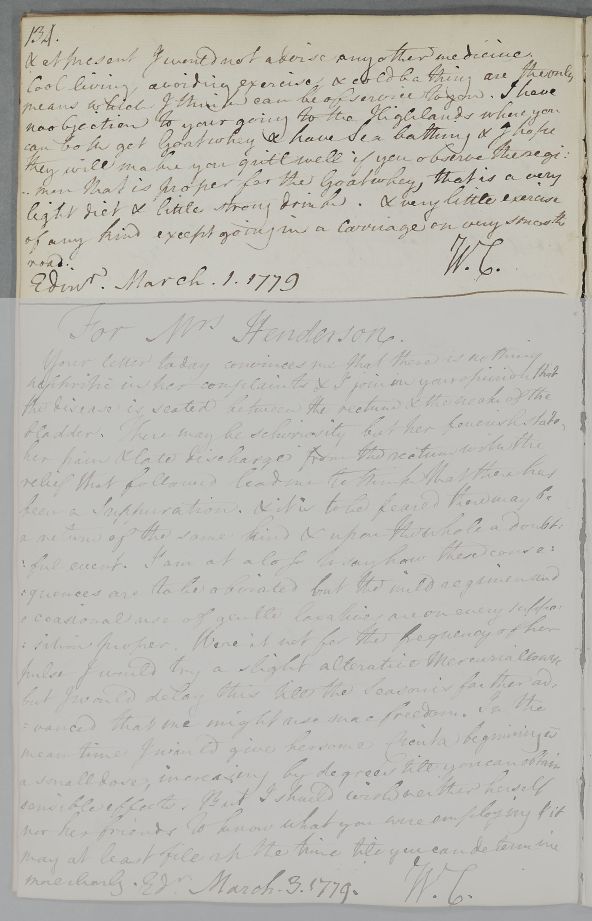 131.
& at present I would not advise any other medicine.
Cool living, avoiding exercise, & cold bathing are the only
means which I think can be of service to you. I have
no objection to your going to the Highlands when you
can both get Goatwhey & have Sea bathing & I hope
they will make you quite well if you observe the regi:
:men that is proper for the Goatwhey, that is a very
light diet & little strong drink. & very little exercise
of any kind except going in a Carriage on very smooth
road.
W.C.
Edinr. March. 1. 1779
For Mrs Henderson.
Your letter today convinces me that there is nothing
nephritic in her complaints & I join in your opinion that
the disease is seated between the rectum & the neck of the
bladder. There may be schirrosity but her feverish state,
her pain & late discharge from the rectum with the
relief that followed lead me to think that there has
been a Suppuration. & it is to be feared there may be
a return of the same kind & upon the whole a doubt:
:ful event. I am at a loss to say how these conse:
:quences are to be obviated but the mild regimen and
occasional use of gentle laxatives are on every suppo:
:sition proper. Were it not for the frequency of her
pulse I would try a slight alterative Mercurial course
but I would delay this till the Season is farther ad:
:vanced that we might use more freedom. In the
mean time I would give her some Cicuta beginning in
a small dose, increasing by degrees till you can obtain
sensible effects. But I should wish neither herself
nor her friends to know what you were employing & it
may at least file up the time till you can determine
more clearly. Edr. March. 3. 1779.
W.C.